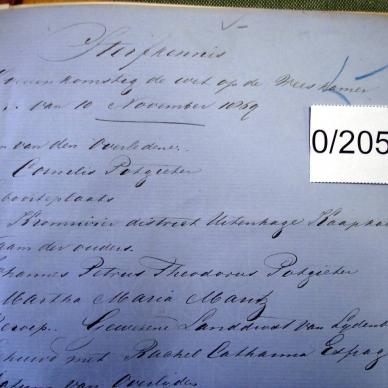 Sterfkennis
overeenkomstig de wet op de Weeskamer
van 10 November 1869
0/205
van den Overledene.
Cornelis Potgieter
boorteplaats
Kromrivier district Uitenhage Kaapkol
aam der ouders.
ohannes Petrus Theodorus Potgieter
Martha Maria Maritz
Beroep. Gewezene Landdrost van Lydenb
ehuwd met Rachel Catharina Espag
van Overlijden